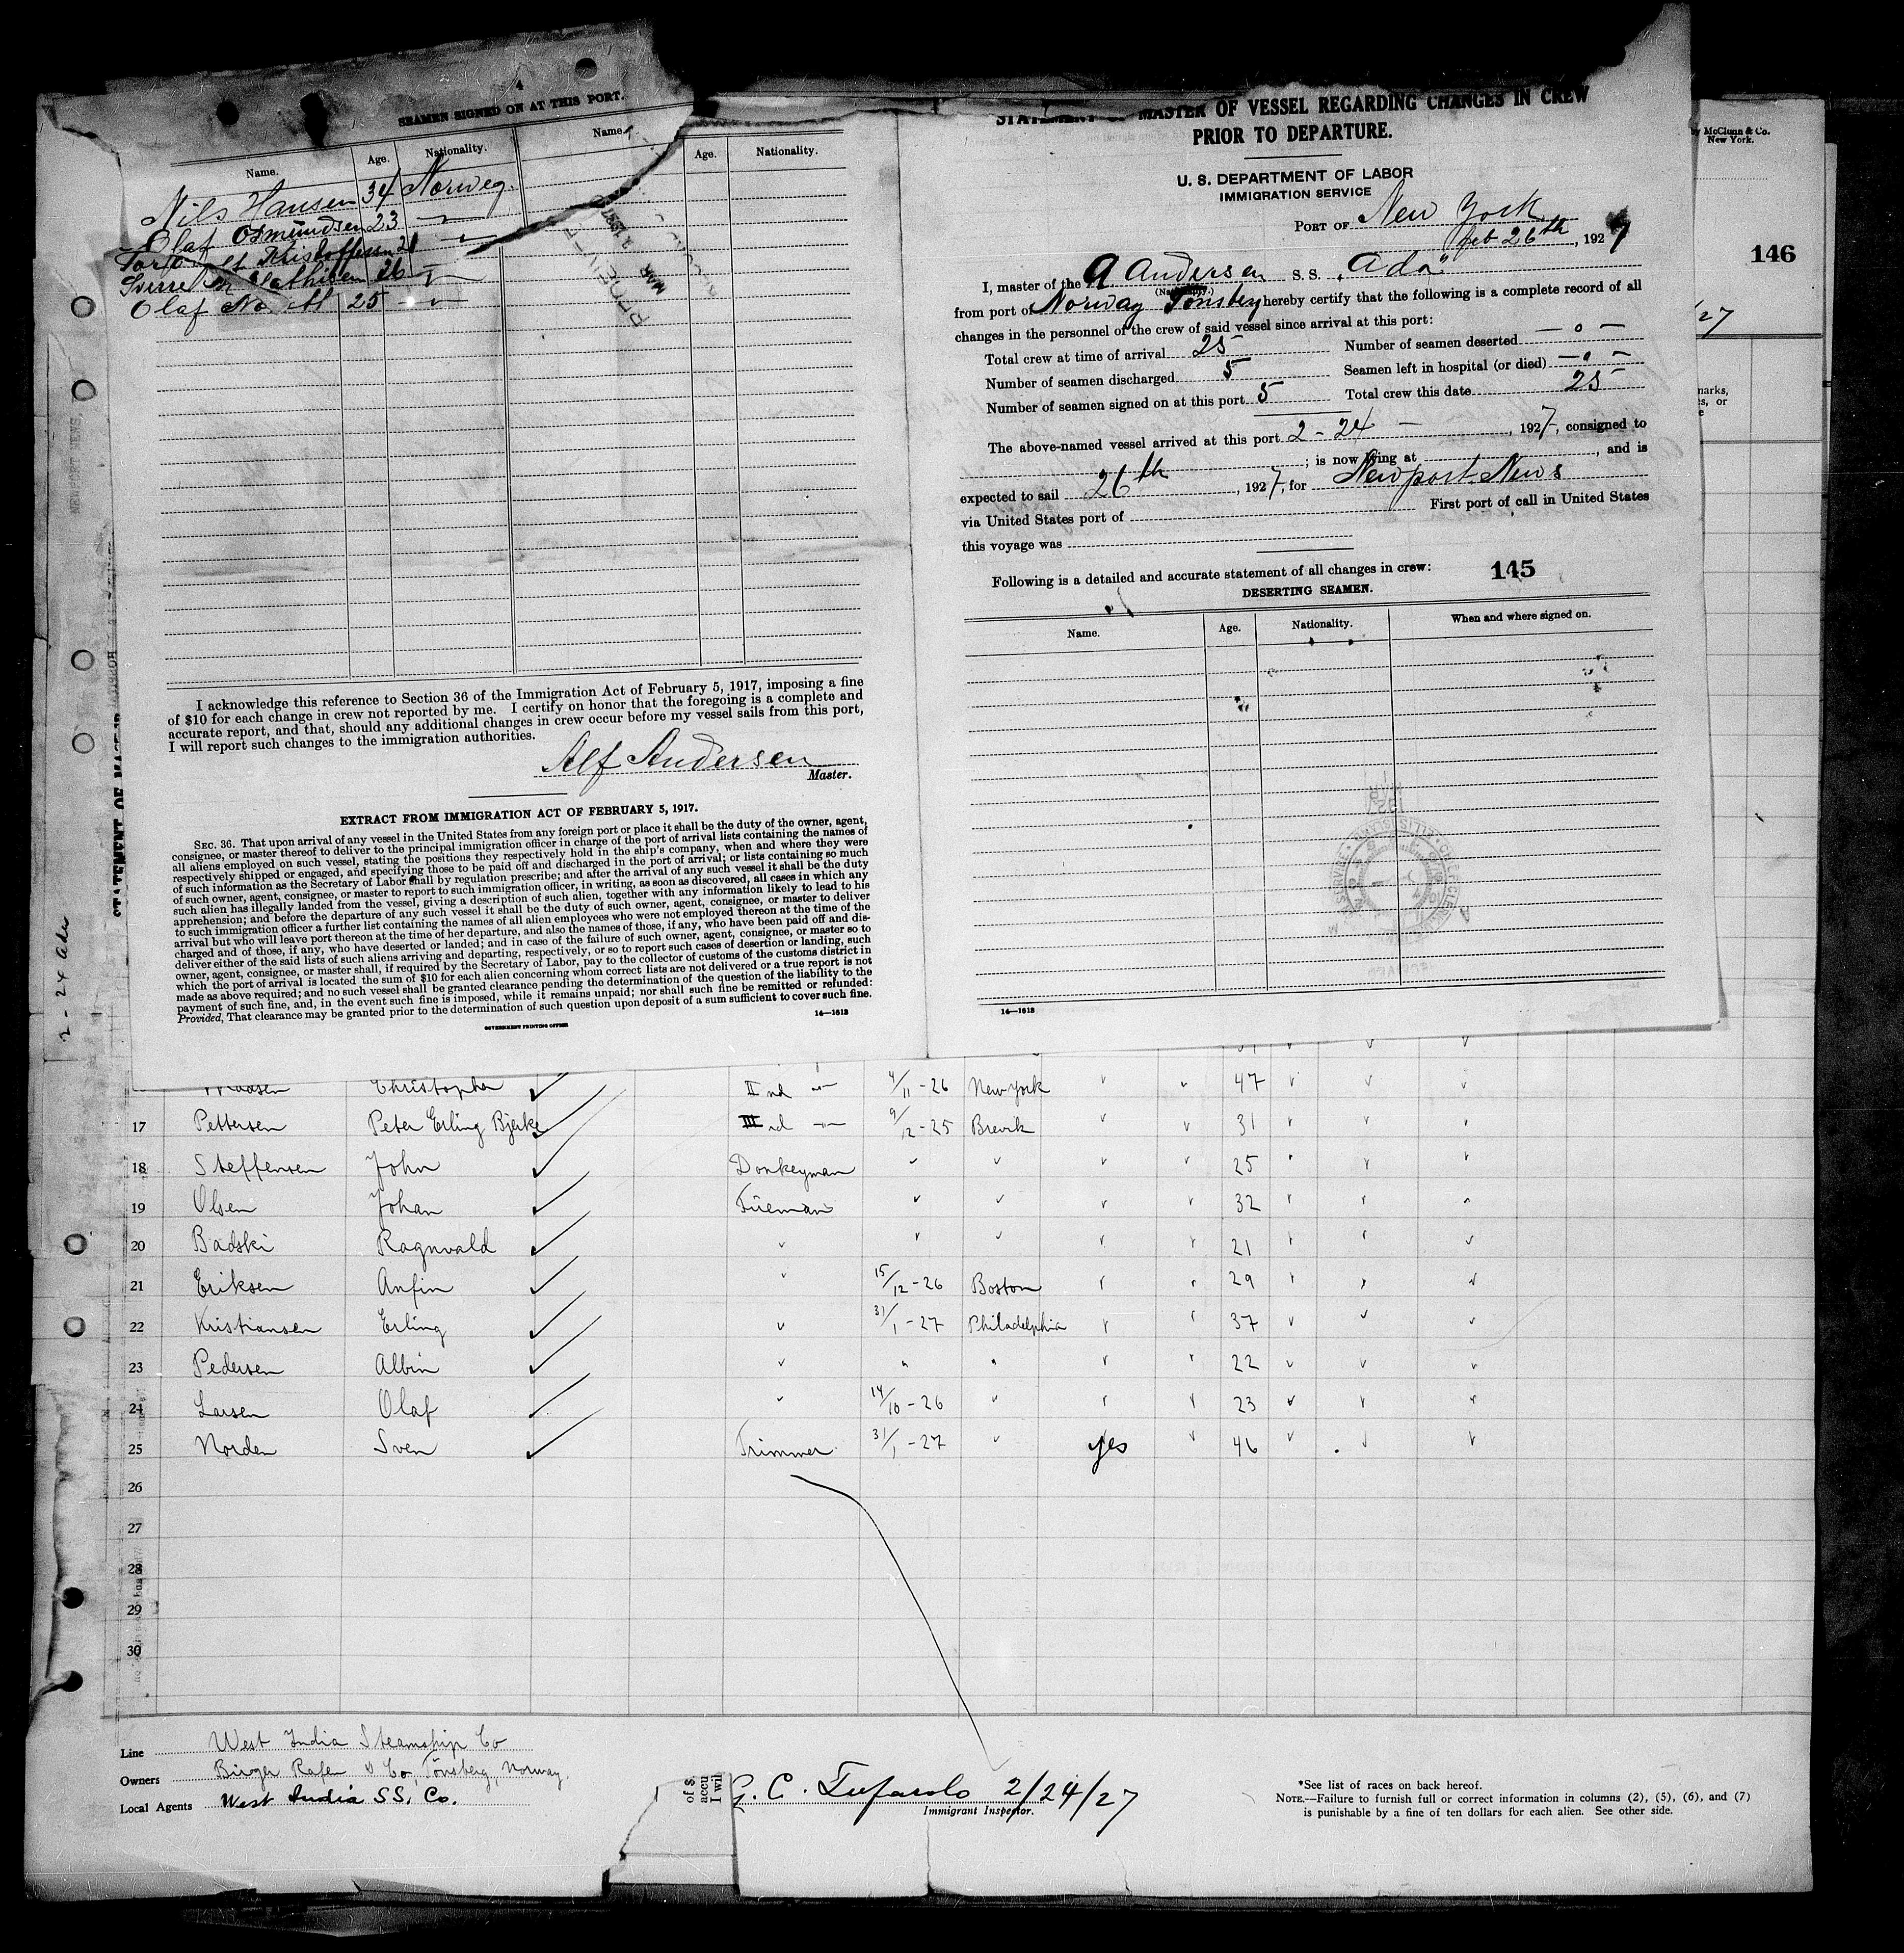 4
SEAMEN SIGNED ON AT THIS PORT.
Name. Age. Nationality. Name. Age. Nationality.
Nils Hansen 34 Norweg.
Olaf Osmundsen 23 —"—
Kristoffersen 21 —"—
Sverre Mathisen 26 —"—
Olaf 25 —"—
I acknowledge this reference to Section 36 of the Immigration Act of February 5, 1917, imposing a fine
of $10 for each change in crew not reported by me. I certify on honor that the foregoing is a complete and
accurate report, and that, should any additional changes in crew occur before my vessel sails from this port,
I will report such changes to the immigration authorities.
Alf Andersen
Master.
EXTRACT FROM IMMIGRATION ACT OF FEBRUARY 5, 1917.
SEC. 36. That upon arrival of any vessel in the United States from any foreign port or place it shall be the duty of the owner, agent,
consignee, or master thereof to deliver to the principal immigration officer in charge of the port of arrival lists containing the names of
all aliens employed on such vessel, stating the positions they respectively hold in the ship's company, when and where they were
respectively shipped or engaged, and specifying those to be paid off and discharged in the port of arrival; or lists containing so much
of such information as the Secretary of Labor shall by regulation prescribe; and after the arrival of any such vessel it shall be the duty
of such owner, agent, consignee, or master to report to such immigration officer, in writing, as soon as discovered, all cases in which any
such alien has illegally landed from the vessel, giving a description of such alien, together with any information likely to lead to his
apprehension; and before the departure of any such vessel it shall be the duty of such owner, agent, consignee, or master to deliver
to such immigration officer a further list containing the names of all alien employees who were not employed thereon at the time of the
arrival but who will leave port thereon at the time of her departure, and also the names of those, if any, who have been paid off and dis-
charged and of those, if any, who have deserted or landed; and in case of the failure of such owner, agent, consignee, or master so to
deliver either of the said lists of such aliens arriving and departing, respectively, or so to report such cases of desertion or landing, such
owner, agent, consignee, or master shall, if required by the Secretary of Labor, pay to the collector of customs of the customs district in
which the port of arrival is located the sum of $10 for each alien concerning whom correct lists are not delivered or a true report is not
made as above required; and no such vessel shall be granted clearance pending the determination of the question of the liability to the
payment of such fine, and, in the event such fine is imposed, while it remains unpaid; nor shall such fine be remitted or refunded:
Provided, That clearance may be granted prior to the determination of such question upon deposit of a sum sufficient to cover such fine.
14—1613
GOVERNMENT PRINTING OFFICE
STATEMENT OF MASTER OF VESSEL REGARDING CHANGES IN CREW
PRIOR TO DEPARTURE.
U. S. DEPARTMENT OF LABOR
IMMIGRATION SERVICE
PORT OF New York
Feb 26th, 1927
I, master of the A Andersen S. S. "Ada"
from port of Norway Tonsberg hereby certify that the following is a complete record of all
changes in the personnel of the crew of said vessel since arrival at this port:
Total crew at time of arrival 25 Number of seamen deserted — 0 —
Number of seamen discharged 5 Seamen left in hospital (or died) — 0 —
Number of seamen signed on at this port 5 Total crew this date 25
The above-named vessel arrived at this port 2 - 24 —, 1927, consigned to
; is now lying at , and is
expected to sail 26th, 1927, for Newport News
via United States port of First port of call in United States
this voyage was
Following is a detailed and accurate statement of all changes in crew:
145
DESERTING SEAMEN.
Name. Age. Nationality. When and where signed on.
14—1613
by McClunn & Co.
New York.
146
/27
2 - 24 Ada
Christopher IInd —"— 4/11 - 26 New York 47
17 Pettersen Peter Erling Bjerke IIIrd —"— 9/12 - 25 Brevik 31
18 Steffensen John Donkeyman 25
19 Olsen Johan Fireman 32
20 Badski Ragnvald 21
21 Eriksen Anfin 15/12 - 26 Boston 29
22 Kristiansen Erling 31/1 - 27 Philadelphia 37
23 Pedersen Albin 22
24 Larsen Olaf 14/10 - 26 23
25 Norden Sven Trimmer 31/1 - 27 yes 46
26
27
28
29
30
Line West India Steamship Co
Owners Birger & Co, Tönsberg, Norway.
Local Agents West India SS. Co.
of $
accu
I wil
G. C. Tufarolo 2/24/27
Immigrant Inspector.
*See list of races on back hereof.
NOTE.—Failure to furnish full or correct information in columns (2), (5), (6), and (7)
is punishable by a fine of ten dollars for each alien. See other side.